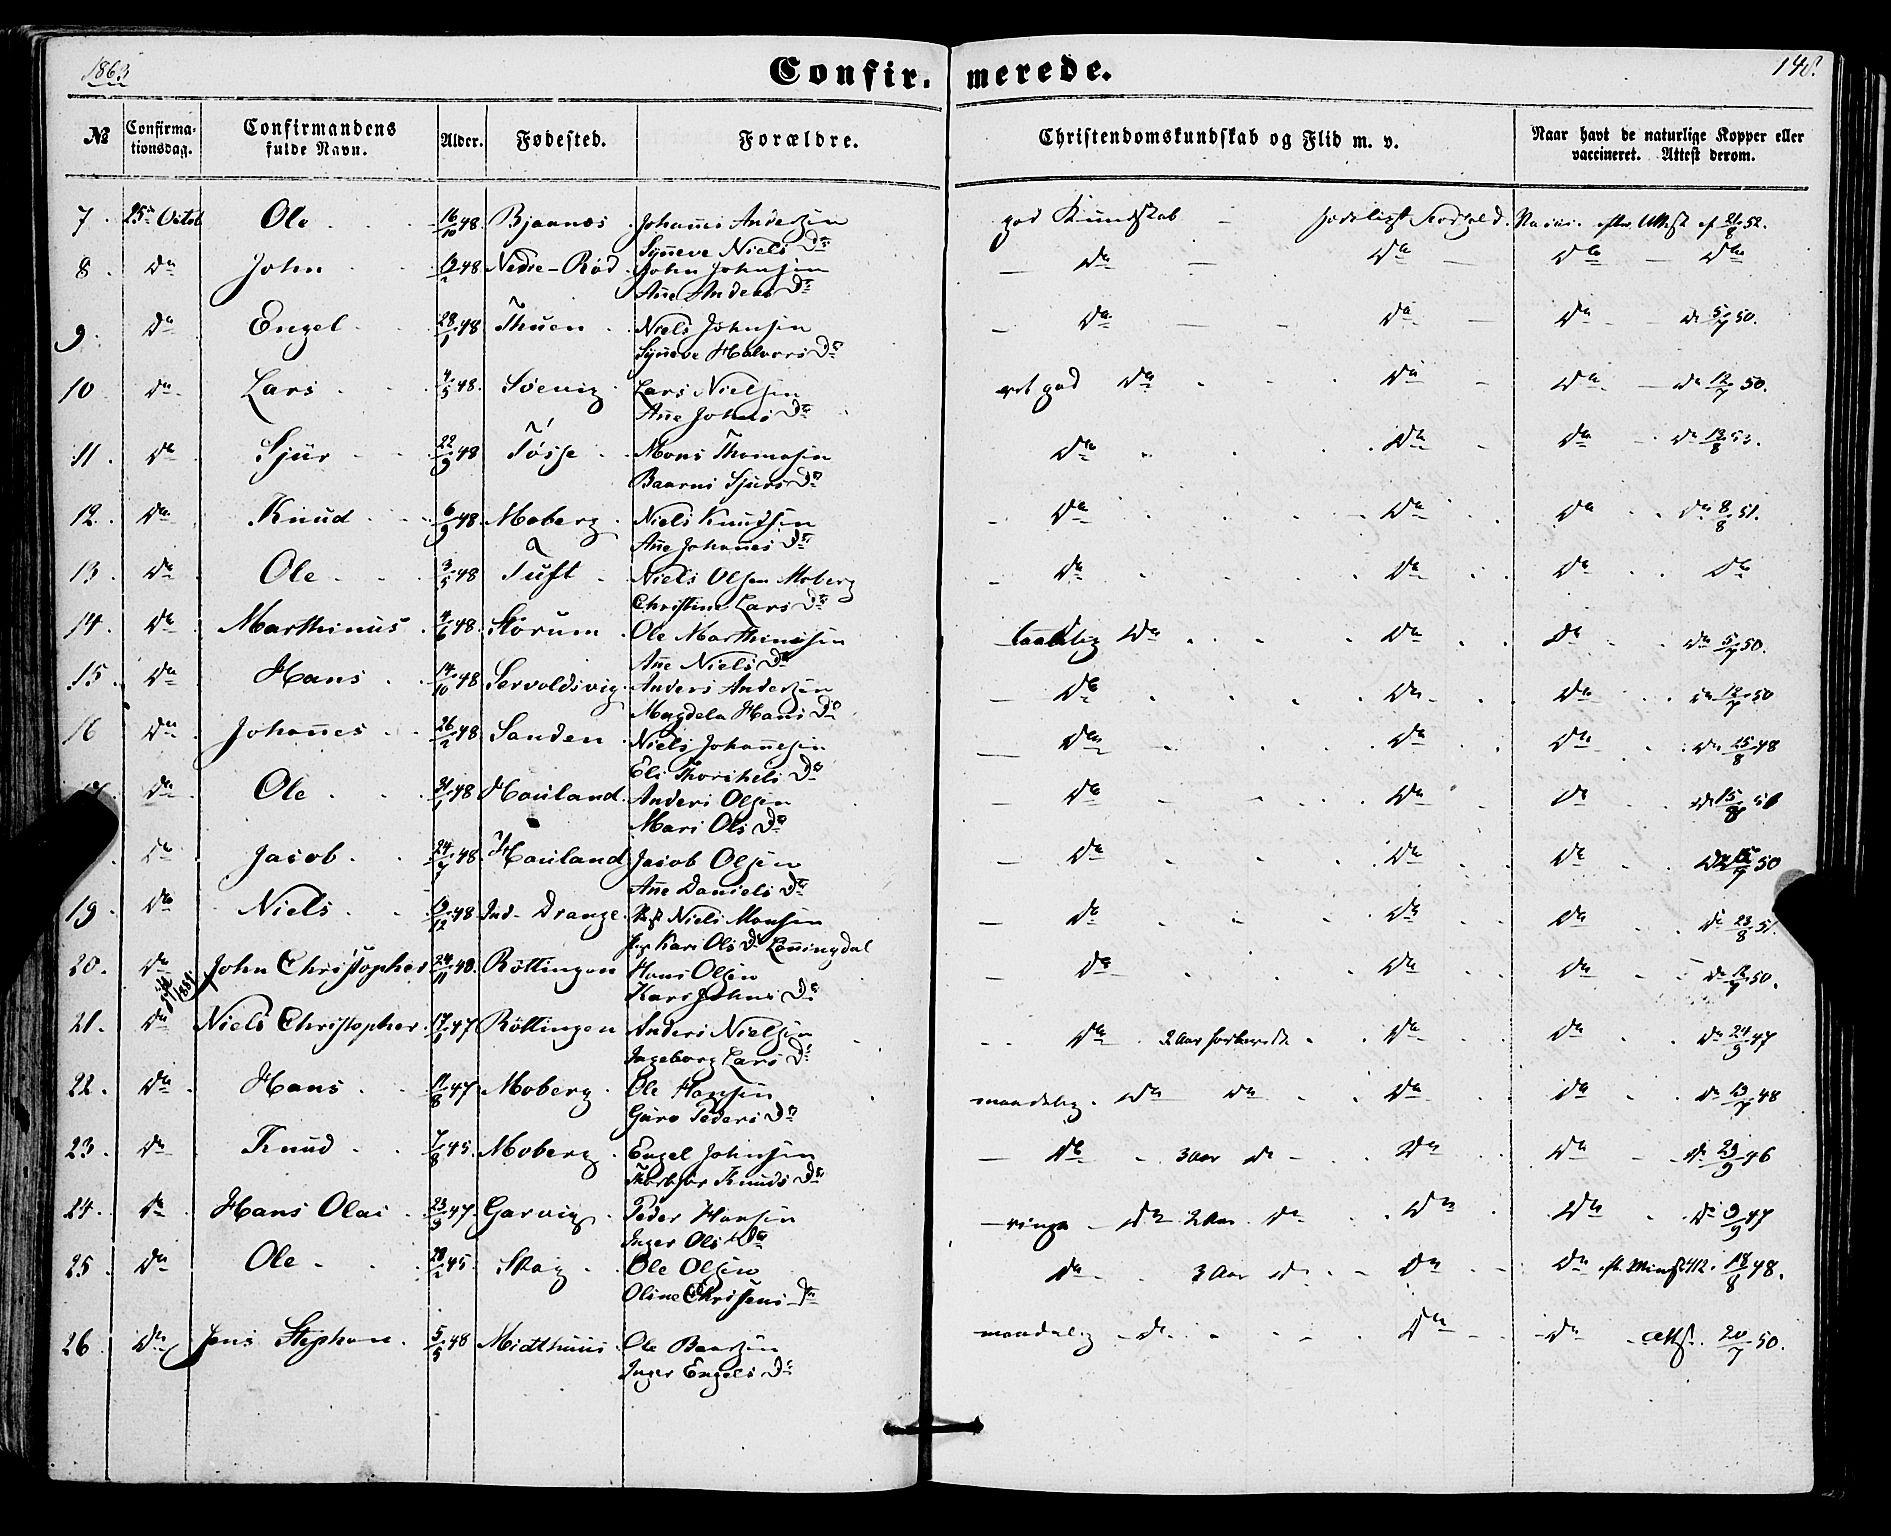 1863
Confir. merede.
148.
№ Confirma- tionsdag. Confirmandens fulde Navn. Alder. Fødested. Forældre. Christendomskundskab og Flid m. v. Naar havt de naturlige Kopper eller vaccineret. Attest derom.
7. 25de Octob Ole 16/10 48 Bjaanæs Johannes Andersen god Kundskab Vacc. efter Attest af 21/8 52.
Synneve Niels Dr
8. Do John /2 48 Nedre-Rød John Johnsen Do Do Do Do
Anne Anders Dr
9. Do Engel 28/1 48 Thuen Niels Johnsen Do Do Do Do 5/7 50.
Synneve Halvors Dr
10 Do Lars 4/5 48. Søevig Lars Nielsen ret god Do Do Do Do 12/7 50.
Anne Johns Dr
11. Do Sjur 22/9 48 Tøsse Mons Thomasen Do Do Do Do 12/8 53.
Baarni Sjurs Dr
12. Do Knud 6/9 48. Moberg Niels Knudsen Do Do Do Do 8/8 51.
Anne Johannes Dr
13. Do Ole 3/5 48 Tuft Niels Olsen Moberg Do Do Do Do
Christine Lars Dr
14. Do Marthinus 4/6 48 Størum Ole Marthinusen Do Do Do Do 5/7 50.
Anne Niels Dr
15. Do Hans 14/10 48 Servoldsvig Anders Andersen Do Do Do Do 12/7 50
Magdela Hans Dr
16 Do Johannes 26/2 48 Sanden Niels Johannesen Do Do Do Do 25/8 48
Eli Thorkels Dr
Do Ole /1 48 Hauland Anders Olsen Do Do Do Do 15/8 51
Mari Ols Dr
Do Jacob 24/ 48 Hauland Jacob Olsen Do Do Do Do /7 50
Anne Daniels Dr
19. Do Niels /12 48 Ind-Drange Niels Monsen Do Do Do Do 23/8 51.
Kari Ols Dr Lønningdal
20. Do John Christopher 24/11 48. Røttingen Hans Olsen Do Do Do Do 12/7 50.
Kari Johns Dr
21. Do Niels Christopher 17/1 47 Røttingen Anders Nielsen Do 2 Aar forberedt Do Do Do 24/9 47
Ingeborg Lars Dr
22. Do Hans 11/8 47 Moberg Ole Hansen maadelig Do Do Do Do Do 13/7 48
Guro Peders Dr
23. Do Knud 7/8 45. Moberg Engel Johnsen Do 3 Aar do Do Do Do 23/9 46
Knuds Dr
24. Do Hans Olai 23/3 47. Garvig Peder Hansen ringe Do 2 Aar Do Do Do Do 9/9 47
Inger Ols Dr
25 Do Ole 28/2 45 Skag Ole Olsen Do 3 Aar do Do Do 18/8 48.
Oline Christens Dr
26. Do Jens Stephan 5/5 48 Midthuus Ole Baarsen maadelig Do Do Do Attest 20/7 50.
Inger Engels Dr